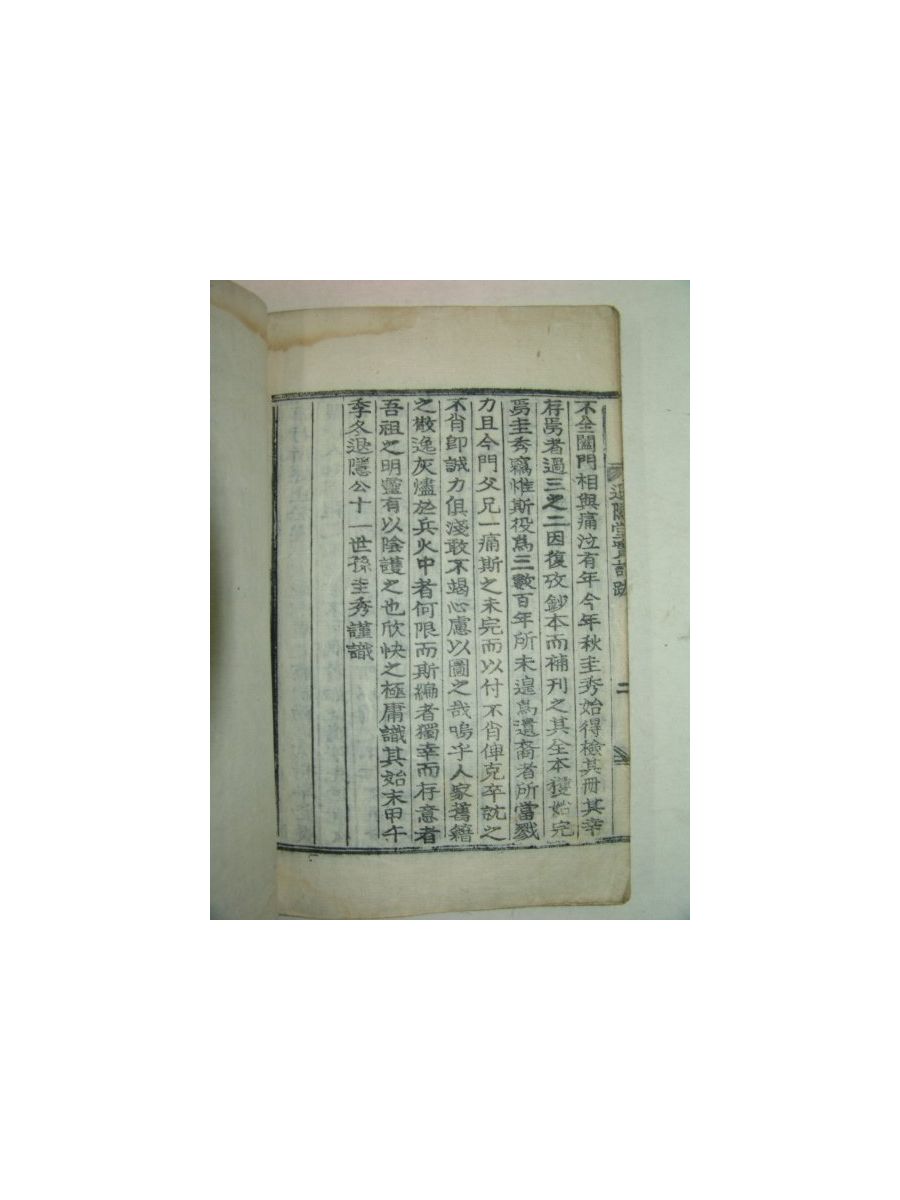 退隱堂實記跋
二
不全闔門相與痛泣有年今年秋圭秀始得檢其冊其幸
存焉者過三之二因復攷鈔本而補刊之其全本獲始完
焉圭秀竊惟斯役爲三數百年所未遑爲遺裔者所當戮
力且今門父兄一痛斯之未完而以付不肖俾克卒訖之
不肖卽誠力俱淺敢不竭心慮以圖之哉嗚乎人家舊籍
之散逸灰燼於兵火中者何限而斯編者獨幸而存意者
吾祖之明靈有以陰護之也欣快之極庸識其始末甲午
季冬退隱公十一世孫圭秀謹識